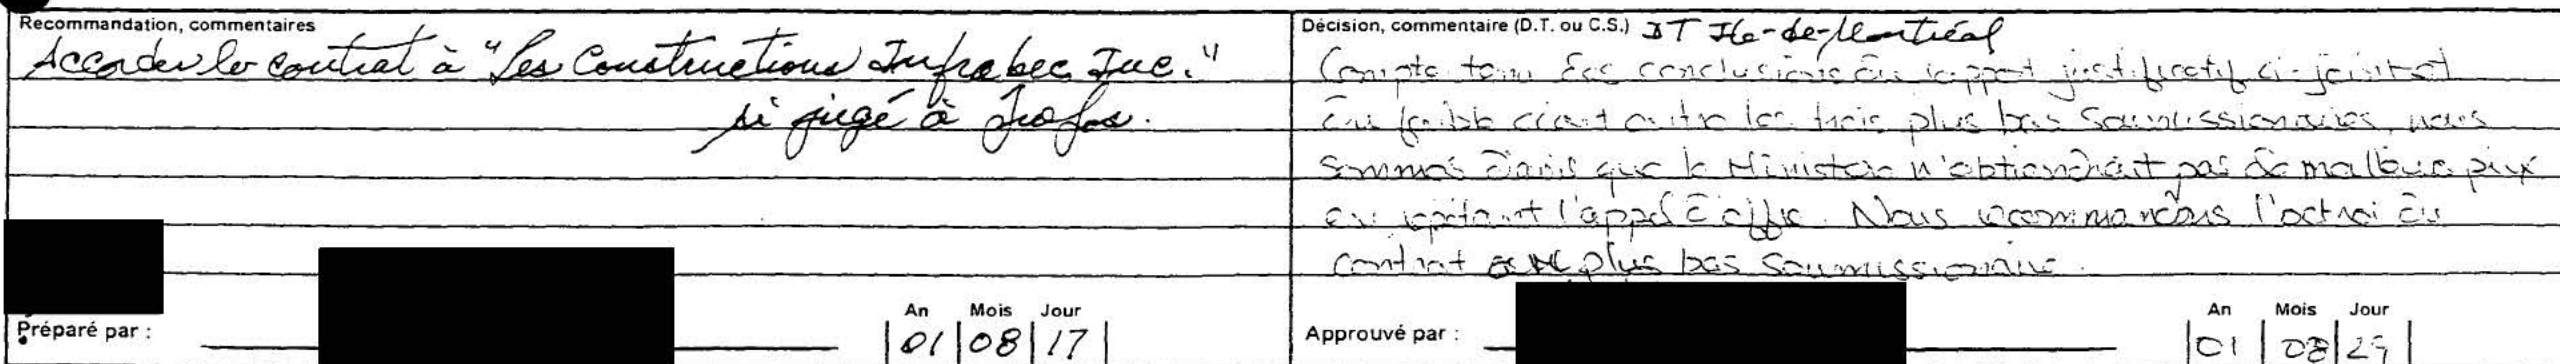 Recommandation, commentaires
Accorder le contrat à "Les Constructions Infrabec Inc."
si jugé à propos.
Préparé par :
An Mois Jour
01 08 17
Décision, commentaire (D.T. ou C.S.) DT Ile-de-Montréal
Compte tenu des conclusions du rapport justificatif ci-joint et
du faible écart entre les trois plus bas soumissionnaires, nous
sommes d'avis que le Ministère n'obtiendrait pas de meilleurs prix
en répétant l'appel d'offre. Nous recommandons l'octroi du
contrat au plus bas soumissionnaire.
Approuvé par :
An Mois Jour
01 08 29